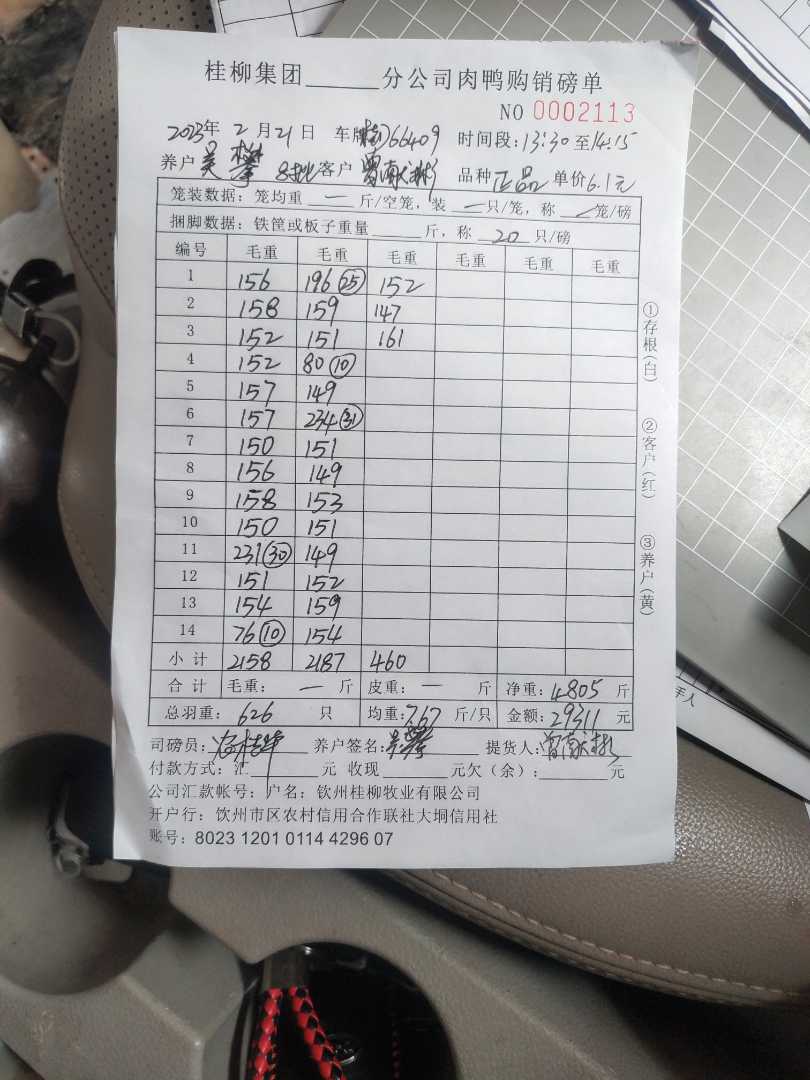 桂柳集团______分公司肉鸭购销磅单
NO 0002113
2023年 2月21日 车牌 66409 时间段:13:30至14:15
养户 吴攀 8批 客户 曾献彬 品种 正品 单价 6.1元
笼装数据:笼均重 一 斤/空笼,装 一 只/笼,称 笼/磅
捆脚数据:铁筐或板子重量______斤,称 20 只/磅
编号 毛重 毛重 毛重 毛重 毛重 毛重
1 156 196 (25) 152
2 158 159 147
3 152 151 161
4 152 80 (10)
5 157 149
6 157 234 (31)
7 150 151
8 156 149
9 158 153
10 150 151
11 231 (30) 149
12 151 152
13 154 159
14 76 (10) 154
小计 2158 2187 460
合计 毛重: 一 斤 皮重: 一 斤 净重: 4805 斤
总羽重: 626 只 均重: 7.67 斤/只 金额: 29311 元
司磅员: 养户签名: 吴攀 提货人: 曾献彬
付款方式:汇______元 收现______元欠(余):______元
公司汇款帐号:户名:钦州桂柳牧业有限公司
开户行:钦州市区农村信用合作联社大垌信用社
账号:8023 1201 0114 4296 07
①存根(白)
②客户(红)
③养户(黄)